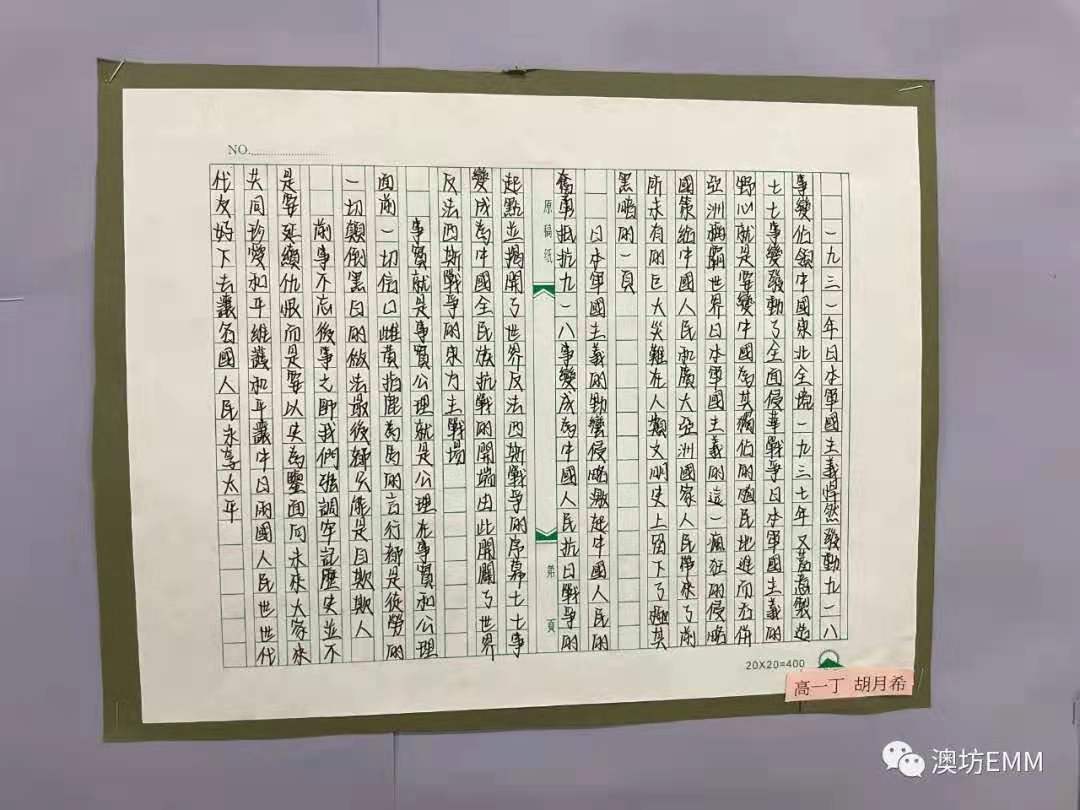 NO.
一九三一年日本軍國主義悍然發動九一八
事變佔領中國東北全境一九三七年又蓄意製造
七七事變發動了全面侵華戰爭日本軍國主義的
野心就是要變中國為其獨佔的殖民地進而吞併
亞洲稱霸世界日本軍國主義的這一瘋狂的侵略
國策給中國人民和廣大亞洲國家人民帶來了前
所未有的巨大災難在人類文明史上留下了極其
黑暗的一頁
日本軍國主義的野蠻侵略激起中國人民的
奮勇抵抗九一八事變成為中國人民抗日戰爭的
原稿紙
第 頁
起點並揭開了世界反法西斯戰爭的序幕七七事
變成為中國全民族抗戰的開端由此開闢了世界
反法西斯戰爭的東方主戰場
事實就是事實公理就是公理在事實和公理
面前一切信口雌黃指鹿為馬的言行都是徒勞的
一切顛倒黑白的做法最後都只能是自欺欺人
前事不忘後事之師我們強調牢記歷史並不
是要延續仇恨而是要以史為鑒面向未來大家來
共同珍愛和平維護和平讓中日兩國人民世世代
代友好下去讓各國人民永享太平
20X20=400
高一丁 胡月希
澳坊EMM